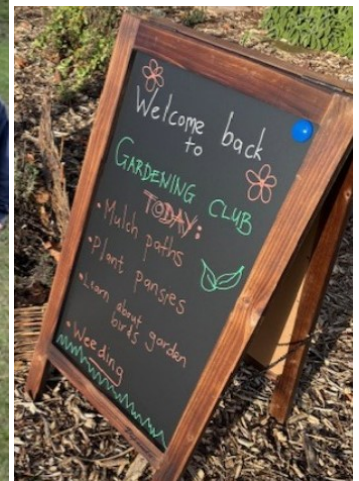 Welcome back
to
GARDENING CLUB
TODAY:
• Mulch paths
• Plant pansies
• Learn about
birds garden
• Weeding